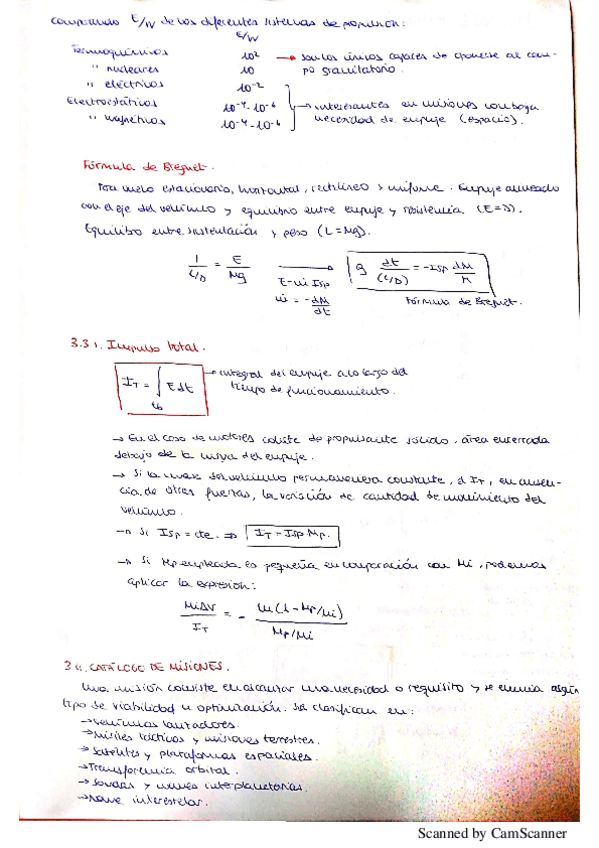 Comparando E/W de los diferentes sistemas de propulsión:
E/W
Termoquímicos 10² → son los únicos capaces de oponerse al cam-
" nucleares 10 po gravitatorio.
" eléctricos 10⁻²
Electrostáticos 10⁻⁴-10⁻⁶ → interesantes en misiones con baja
" magnéticos 10⁻⁴-10⁻⁶ necesidad de empuje (espacio).
Fórmula de Breguet.
Para vuelo estacionario, horizontal, rectilíneo y uniforme. Empuje alineado
con el eje del vehículo y equilibrio entre empuje y resistencia (E=D).
Equilibrio entre sustentación y peso (L=Mg).
1/(L/D) = E/Mg → g dt/(L/D) = -Isp dM/M
E=ṁ Isp
ṁ = -dM/dt Fórmula de Breguet.
3.3.1. Impulso total.
I_T = ∫ E dt → integral del empuje a lo largo del
t_b tiempo de funcionamiento.
→ En el caso de motores cohete de propulsante sólido, área encerrada
debajo de la curva del empuje.
→ Si la masa del vehículo permaneciera constante, el I_T, en ausen-
cia de otras fuerzas, la variación de cantidad de movimiento del
vehículo.
→ Si Isp = cte. ⇒ I_T = Isp Mp.
→ Si Mp empleada es pequeña en comparación con Mi, podemos
aplicar la expresión:
MiΔV/I_T = - ln(1-Mp/Mi)/(Mp/Mi)
3.4. CATÁLOGO DE MISIONES.
Una misión consiste en alcanzar una necesidad o requisito y se enuncia según
tipo de viabilidad u optimización. Se clasifican en:
→Vehículos lanzadores.
→Misiles tácticos y misiones terrestres.
→Satélites y plataformas espaciales.
→Transferencia orbital.
→Sondas y naves interplanetarias.
→Nave interestelar.
Scanned by CamScanner